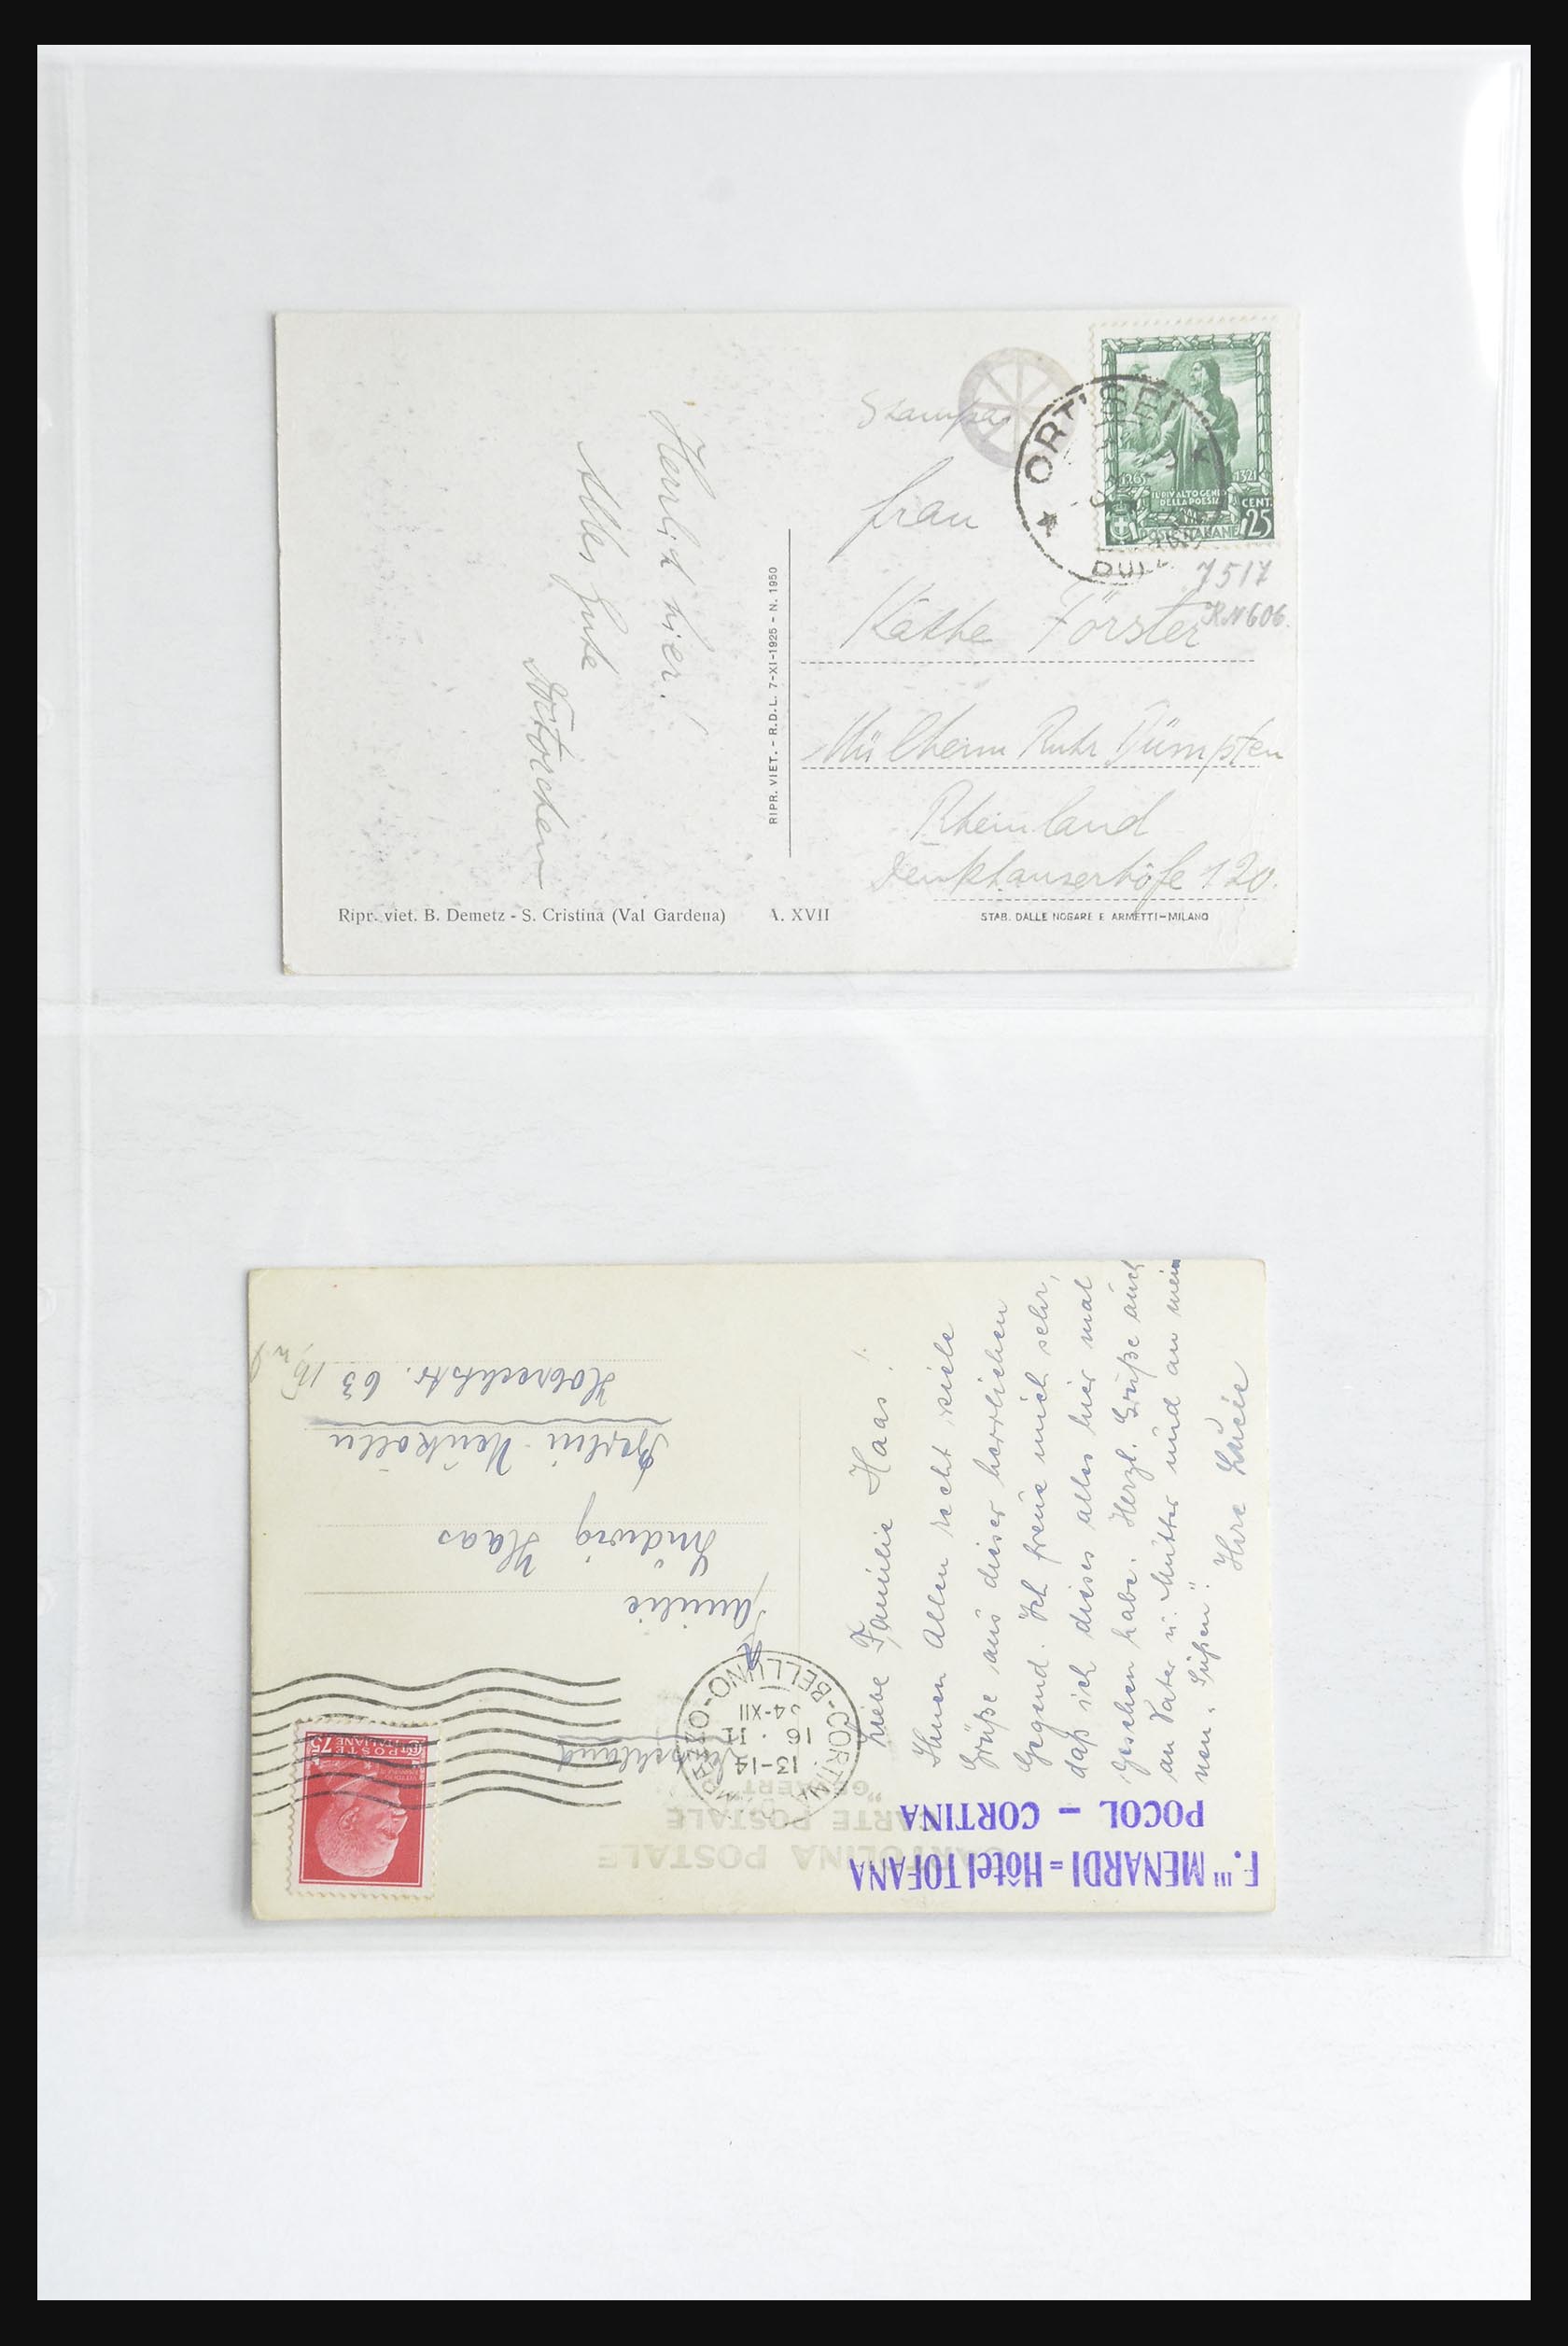 Stampa
Frau
Käthe Förster
Mülheim Ruhr Dümpten
Rheinland
Denkhauserhöfe 120.
Herrlich hier!
Alles Gute
ORTISEI
1265 1321
IL RIVALTO GENIO
DELLA POESIA
CENT.
POSTE ITALIANE 25
7517
RN606.
RIPR. VIET. - R.D.L. 7-XI-1925 - N. 1950
Ripr. viet. B. Demetz - S. Cristina (Val Gardena) A. XVII
STAB. DALLE NOGARE E ARMETTI-MILANO
F.lli MENARDI = Hôtel TOFANA
POCOL - CORTINA
CARTOLINA POSTALE
CARTE POSTALE
"GEVAERT"
CORTINA D'AMPEZZO-BELLUNO
13-14
16 · II
34-XII
POSTE ITALIANE
75
Liebe Familie Haas!
Ihnen Allen recht viele
Grüße aus dieser herrlichen
Gegend. Ich freue mich sehr,
daß ich dieses alles hier mal
gesehen habe. Herzl. Grüße auch
an Vater u. Mutter und an mein
nen "Süßen".
Ihre Lucie
Familie
Ludwig Haas
Berlin-Neukölln
Hobrechtstr. 63
Deutschland